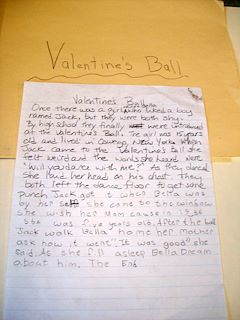 Valentine's Ball
Valentine's Ball
Once there was a girl who liked a boy
named Jack, but they were both shy.
By high school they finally were
at the Valentine's Ball. The girl was 15 years
old and lived in New York. When
Jack came to the Valentine's Ball she
felt weird and the words she heard were
"will you dance with me?" As they danced
she laid her head on his chest. They
both left the dance floor to get some
punch Jack got it when Bella was
by her self she came to the window
she wish her Mom cause in
she was five years old. After the ball
Jack walk Bella home her mother
ask how it went "It was good" she
said. As she fell asleep Bella Dream
about him. The End